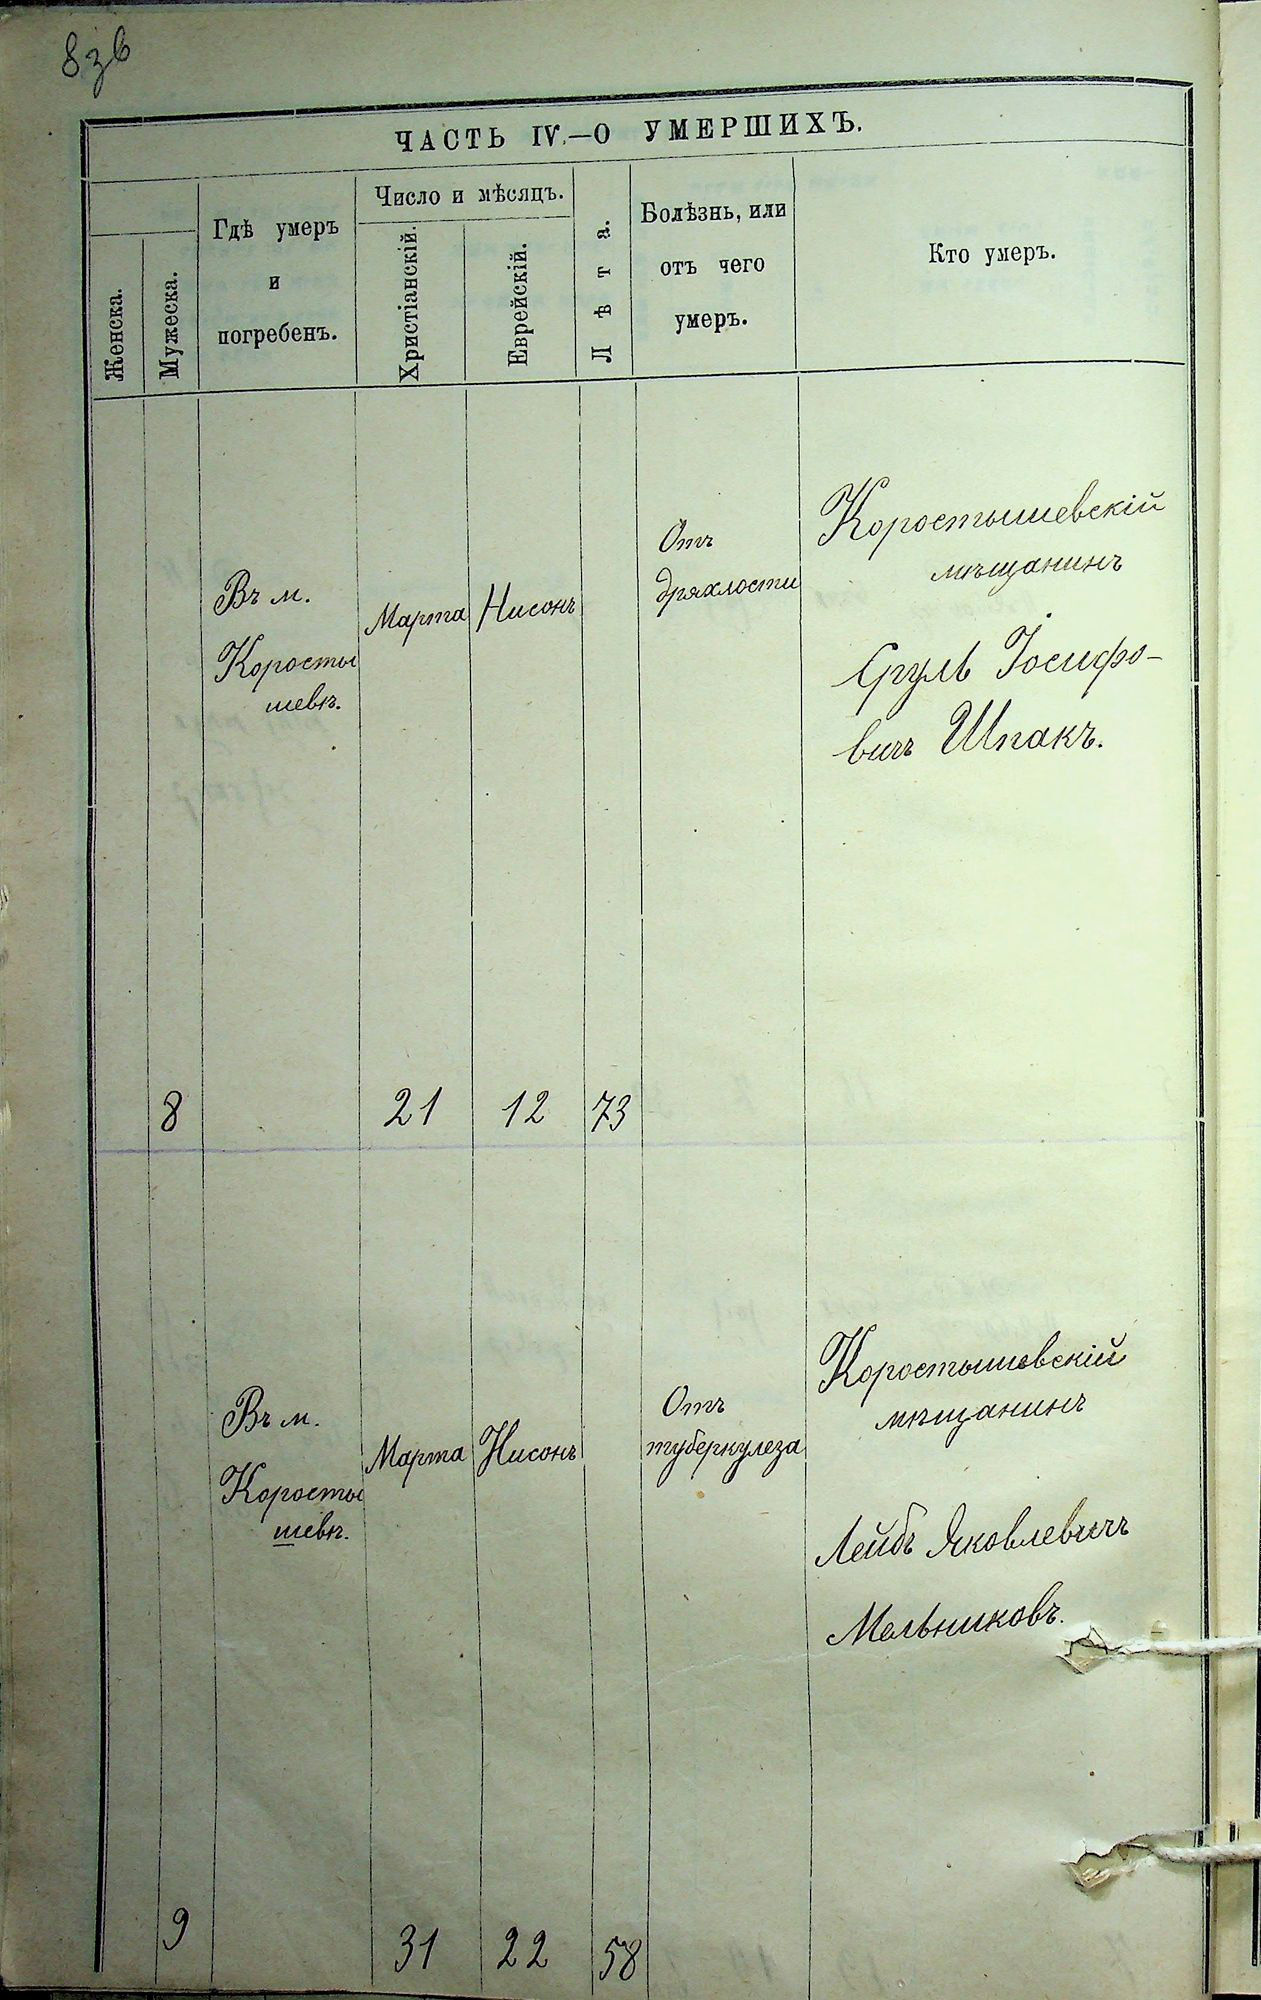 8зв
ЧАСТЬ IV.—О УМЕРШИХЪ.
Женска.
Мужеска.
Гдѣ умеръ
и
погребенъ.
Число и мѣсяцъ.
Христіанскій.
Еврейскій.
Лѣта.
Болѣзнь, или
отъ чего
умеръ.
Кто умеръ.
Въ м.
Коросты
шевѣ.
Марта
Нисонъ
Отъ
дряхлости
Коростышевскій
мѣщанинъ
Сруль Іосифо-
вичъ Шпакъ.
8
21
12
73
Въ м.
Коросты
шевѣ.
Марта
Нисонъ
Отъ
туберкулеза
Коростышевскій
мѣщанинъ
Лейбъ Яковлевичъ
Мельниковъ.
9
31
22
58